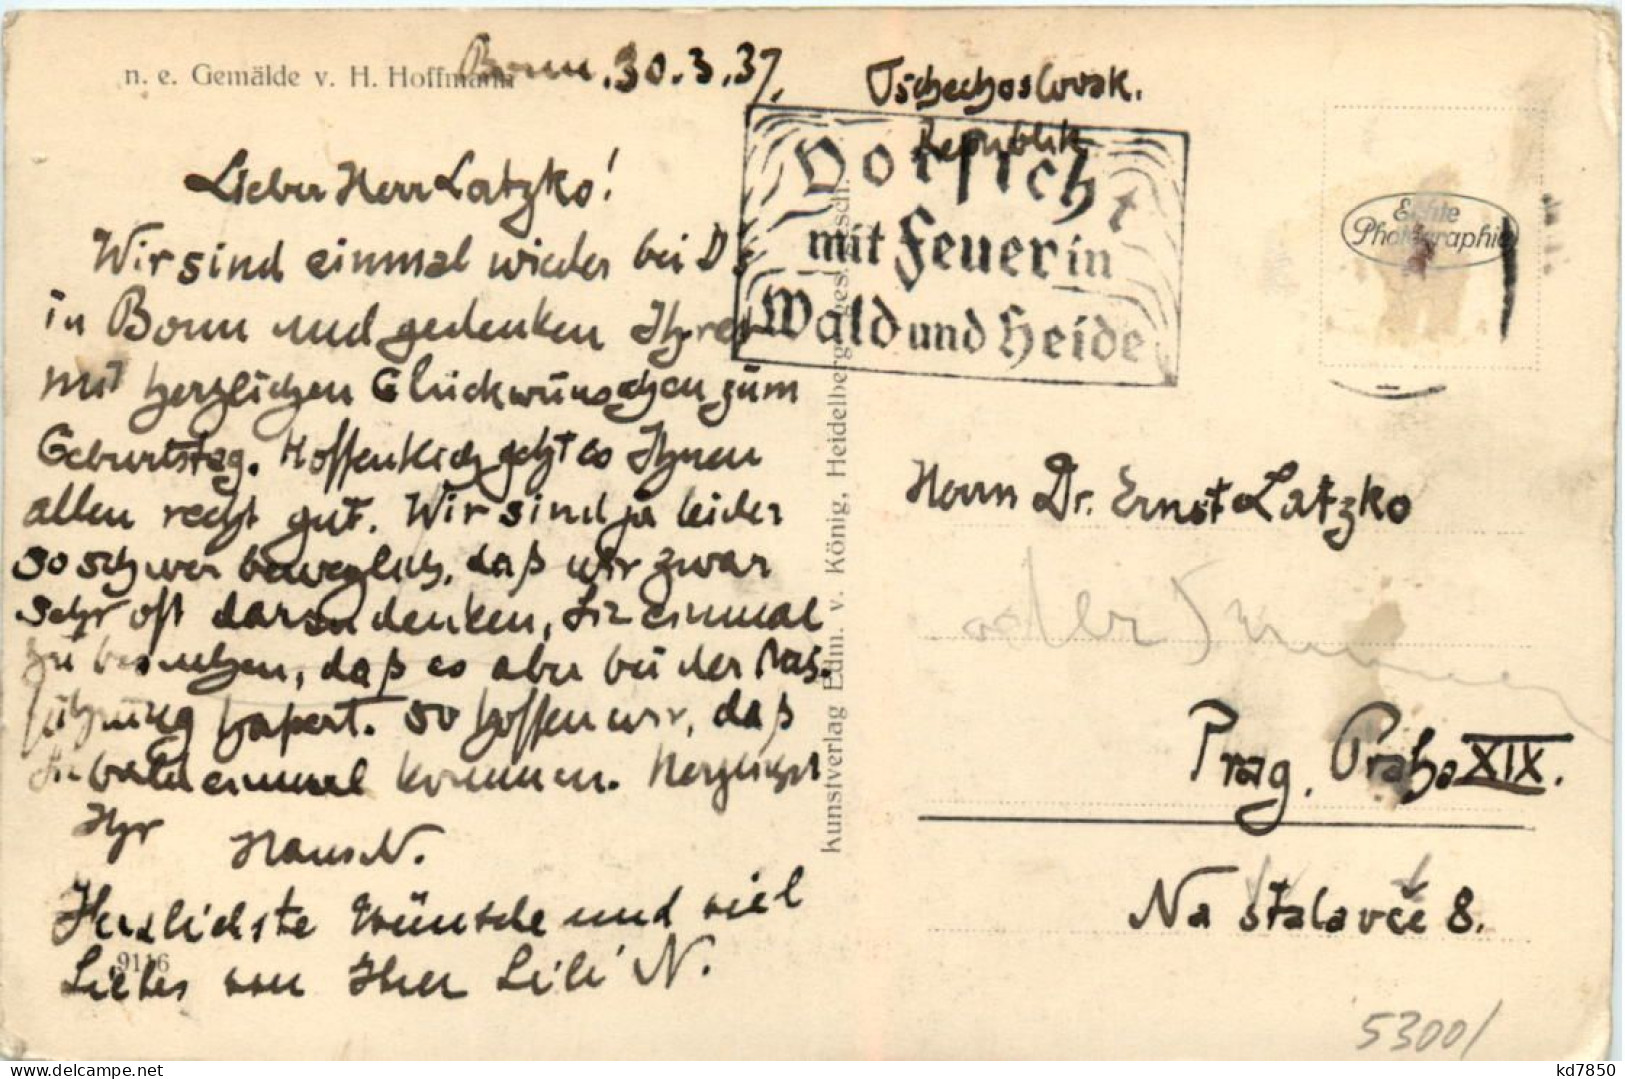 n. e. Gemälde v. H. Hoffmann
Bonn, 30.3.37.
Lieber Herr Latzko!
Wir sind einmal wieder bei
in Bonn und gedenken Ihrer
mit herzlichen Glückwünschen zum
Geburtstag. Hoffentlich geht es Ihnen
allen recht gut. Wir sind ja leider
so schwer beweglich, daß wir zwar
sehr oft daran denken, Sie einmal
zu besuchen, daß es aber bei der Aus-
führung hapert. So hoffen wir, daß
Sie bald einmal kommen. Herzlichst
Ihr Hans N.
Herzlichste Wünsche und viel
Liebes von Ihrer Lili N.
9116
Kunstverlag Edm. v. König, Heidelberg ges. gesch.
Tschechoslovak.
Republik
Vorsicht
mit Feuer in
Wald und Heide
Echte
Photographie
Herrn Dr. Ernst Latzko
Prag. Praha XIX.
Na štalavče 8.
5300/
kd7850